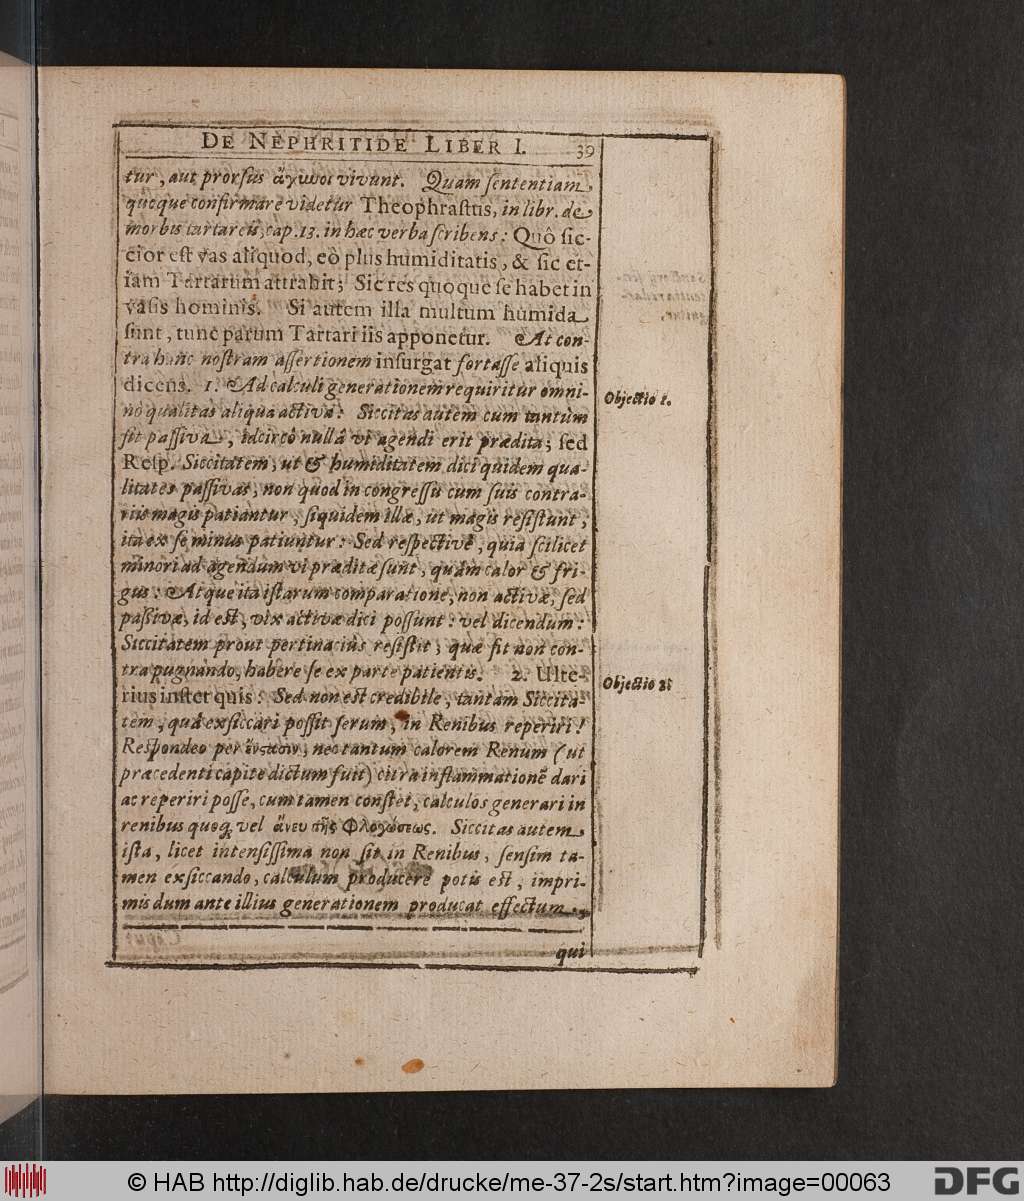 DE NEPHRITIDE LIBER I. 39
tur, aut prorſus ἄγονοι vivunt. Quam ſententiam
quoque confirmare videtur Theophraſtus, in libr. de
morbis tartareis, cap. 13. in hæc verba ſcribens: Quô ſic-
cior eſt vas aliquod, eô plus humiditatis, & ſic et-
iam Tartarum attrahit; Sic res quoque ſe habet in
vaſis hominis. Si autem illa multum humida
ſunt, tunc parum Tartari iis apponetur. At con-
tra hanc noſtram aſſertionem inſurgat fortaſſe aliquis
dicens. 1. Ad calculi generationem requiritur omni-
nò qualitas aliqua activa: Siccitas autem cum tantùm
ſit paſſiva, idcircò nullâ vi agendi erit prædita; ſed
Reſp. Siccitatem, ut & humiditatem dici quidem qua-
litates paſſivas, non quod in congreſſu cum ſuis contra-
riis magis patiantur, ſiquidem illæ, ut magis reſiſtunt,
ita ex ſe minus patiuntur: Sed reſpectivè, quia ſcilicet
minori ad agendum vi præditæ ſunt, quàm calor & fri-
gus: Atque ita iſtarum comparatione, non activæ, ſed
paſſivæ, id eſt, vix activæ dici poſſunt: vel dicendum:
Siccitatem prout pertinaciùs reſiſtit, quæ fit non con-
tra pugnando, habere ſe ex parte patientis. 2. Ulte-
rius inſtet quis: Sed non eſt credibile, tantam Siccita-
tem, quâ exſiccari poſſit ſerum, in Renibus reperiri!
Reſpondeo per ἔνστασιν, nec tantum calorem Renum (ut
præcedenti capite dictum fuit) citra inflammationẽ dari
ac reperiri poſſe, cum tamen conſtet, calculos generari in
renibus quoq; vel ἄνευ τῆς φλογώσεως. Siccitas autem
iſta, licet intenſiſſima non ſit in Renibus, ſenſim ta-
men exſiccando, calculum producere potis eſt, impri-
mis dum ante illius generationem producat effectum,
qui
Objectio 1.
Objectio 2.
© HAB http://diglib.hab.de/drucke/me-37-2s/start.htm?image=00063
DFG